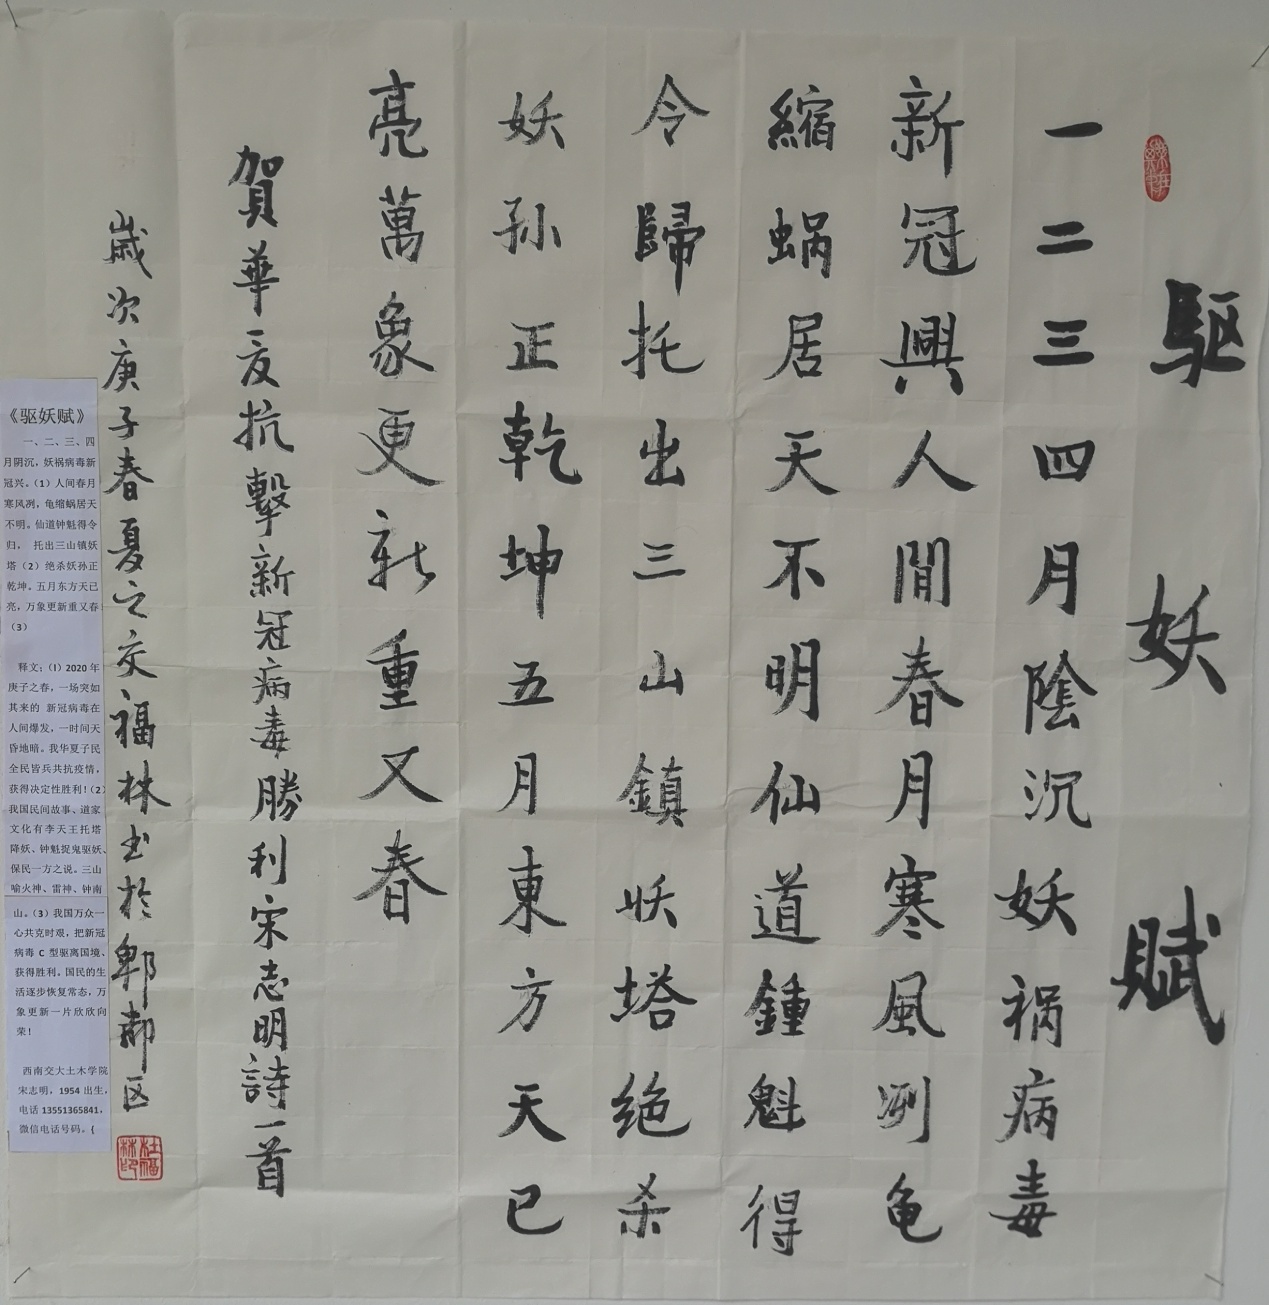 驱妖赋
一二三四月陰沉妖祸病毒
新冠興人間春月寒風冽龟
縮蜗居天不明仙道鍾魁得
令歸托出三山鎮妖塔绝杀
妖孙正乾坤五月東方天已
亮萬象更新重又春
賀華夏抗擊新冠病毒勝利宋志明詩一首
歲次庚子春夏之交福林书於郫都区
杜福林印
《驱妖赋》
一、二、三、四
月阴沉，妖祸病毒新
冠兴。（1）人间春月
寒风冽，龟缩蜗居天
不明。仙道钟魁得令
归， 托出三山镇妖
塔（2）绝杀妖孙正
乾坤。五月东方天已
亮，万象更新重又春
（3）
释文；（1）2020 年
庚子之春，一场突如
其来的 新冠病毒在
人间爆发，一时间天
昏地暗。我华夏子民
全民皆兵共抗疫情，
获得决定性胜利！（2）
我国民间故事、道家
文化有李天王托塔
降妖、钟魁捉鬼驱妖、
保民一方之说。三山
喻火神、雷神、钟南
山。（3）我国万众一
心共克时艰，把新冠
病毒 C 型驱离国境、
获得胜利。国民的生
活逐步恢复常态，万
象更新一片欣欣向
荣！
西南交大土木学院
宋志明，1954 出生，
电话 13551365841，
微信电话号码。（